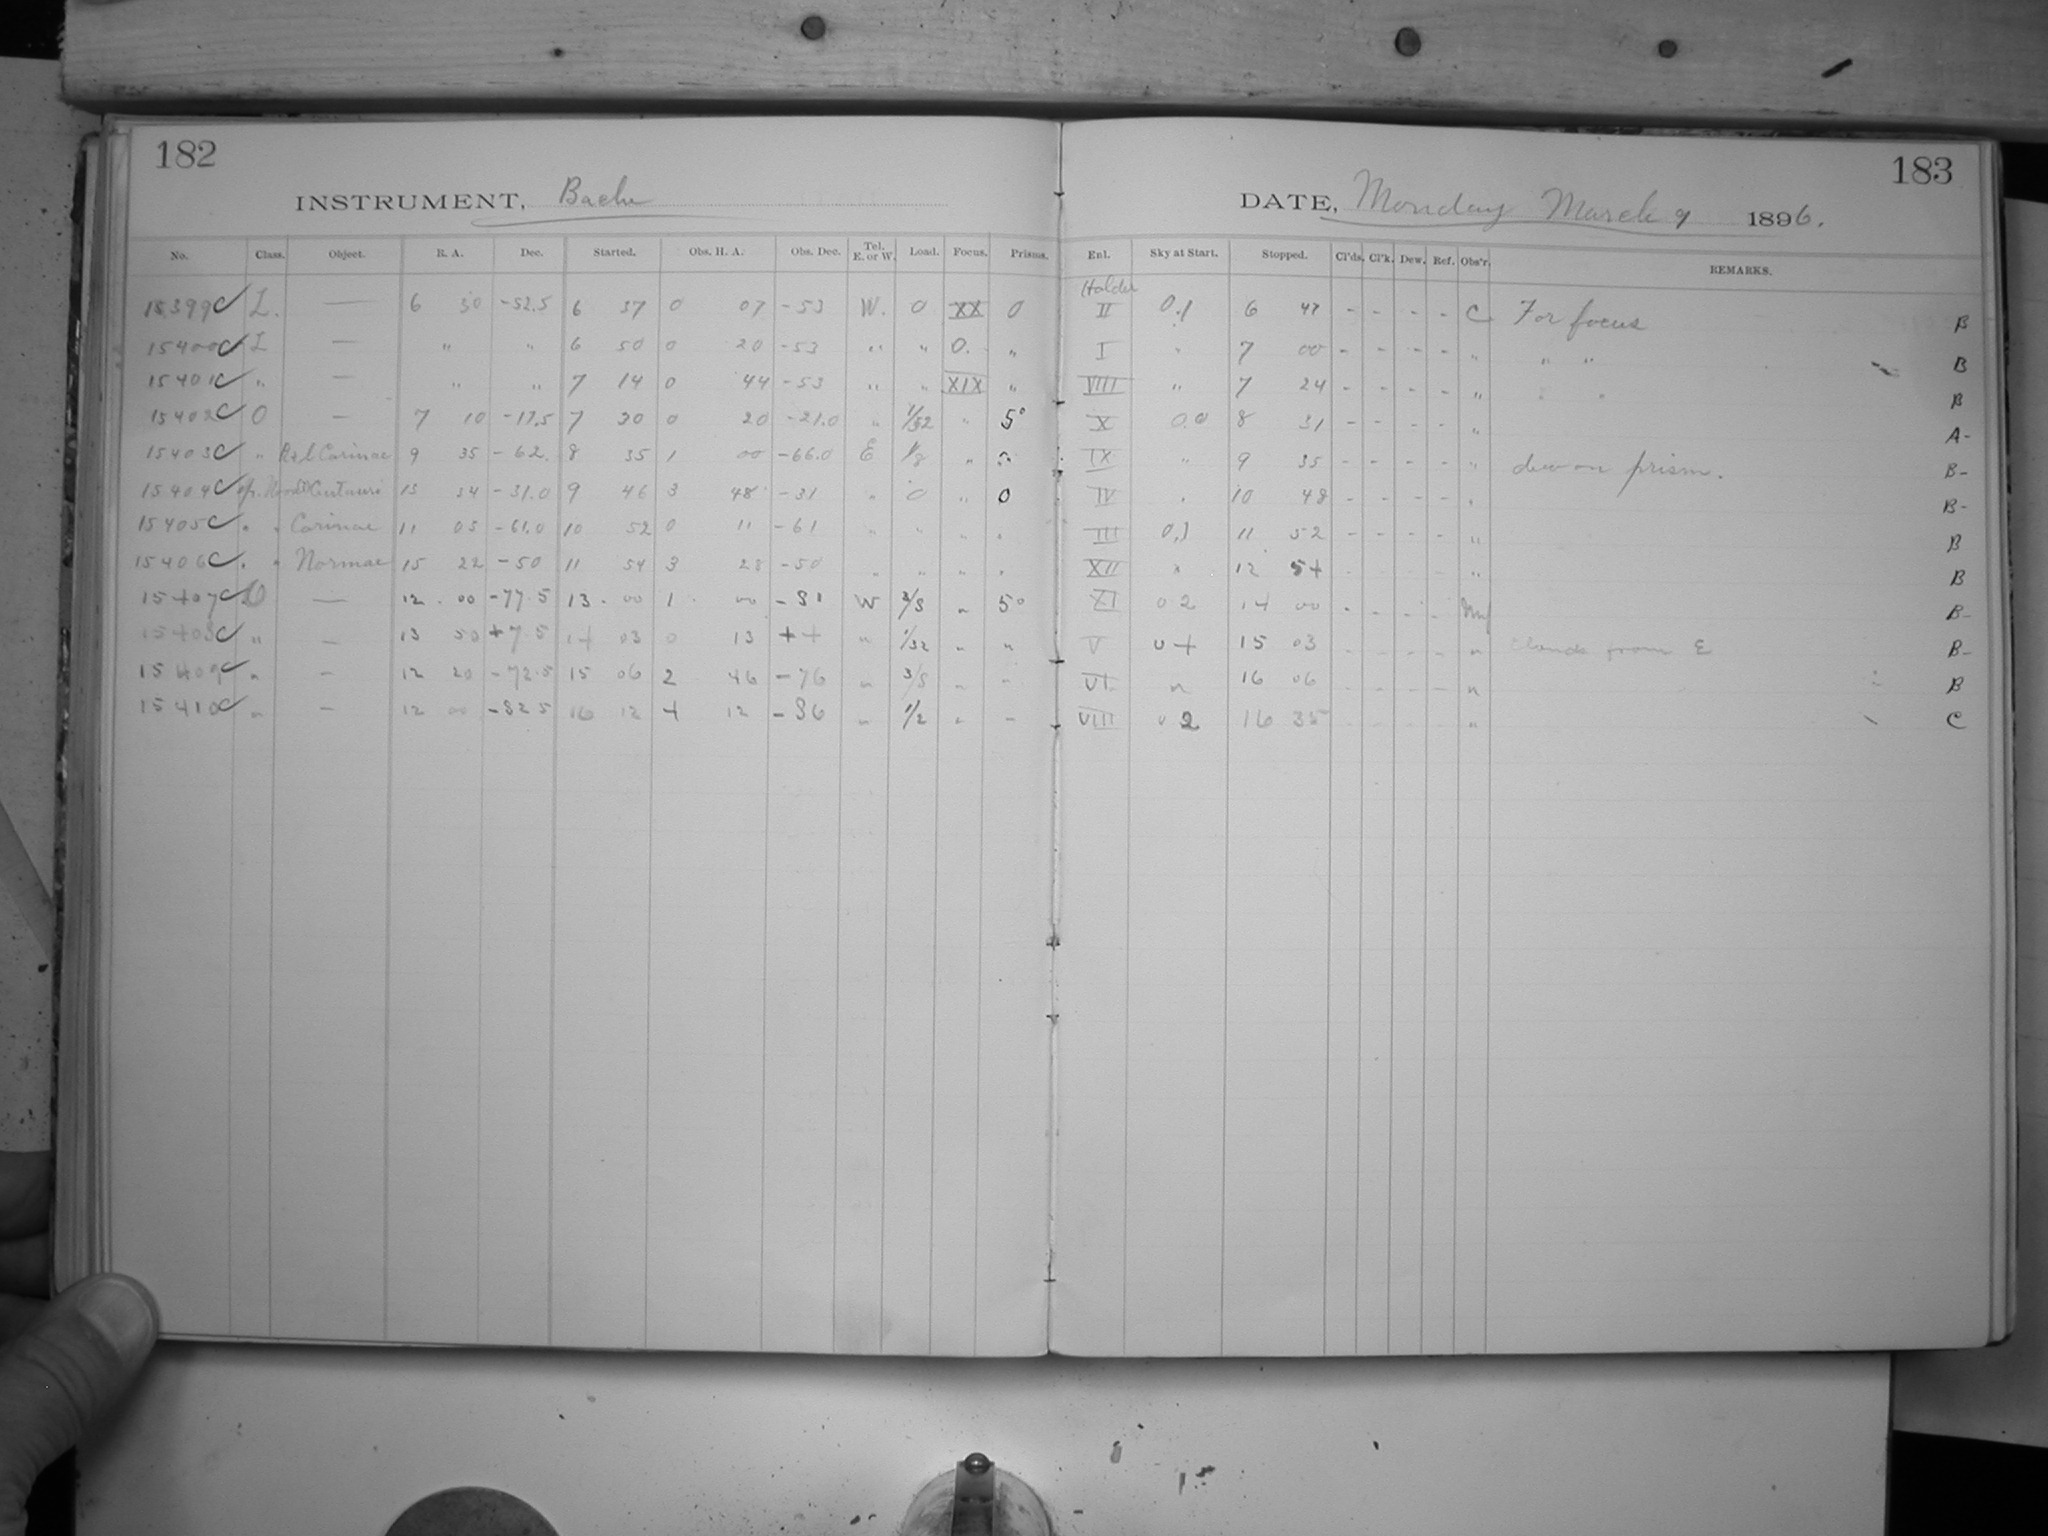 182
183
INSTRUMENT, Bache
DATE, Monday March 9 1896.
No. Class. Object. R. A. Dec. Started. Obs. H. A. Obs. Dec. Tel. E. or W. Load. Focus. Prisms. Enl. Sky at Start. Stopped. Cl'ds. Cl'k. Dew. Ref. Obs'r. REMARKS.
Holder
15399 C L. — 6 30 -52.5 6 37 0 07 -53 W. 0 XX 0 II 0.1 6 47 - - - - C For focus B
15400 C L — " " 6 50 0 20 -53 " " 0. " I " 7 00 - - - - " " " B
15401 C " — " " 7 14 0 44 -53 " " XIX " VIII " 7 24 - - - - " " " B
15402 C O — 7 10 -17.5 7 30 0 20 -21.0 " 1/32 " 5° X 0.0 8 31 - - - - " A-
15403 C " Carinae 9 35 -62. 8 35 1 00 -66.0 E 1/8 " " IX " 9 35 - - - - " dew on prism. B-
15404 C sp. Centauri 13 34 -31.0 9 46 3 48 -31 " 0 " 0 IV " 10 48 - - - - " B-
15405 C " " Carinae 11 03 -61.0 10 52 0 11 -61 " " " " III 0.1 11 52 - - - - " B
15406 C " " Normae 15 22 -50 11 54 3 28 -50 " " " " XII " 12 54 - - - - " B
15407 C O — 12 00 -77.5 13 00 1 00 -81 W 3/8 " 5° XI 02 14 00 - - - - B-
15408 C " — 13 50 +7 5 14 03 0 13 +4 " 1/32 " " V 04 15 03 - - - - " Clouds from E B-
15409 C " — 12 20 -72.5 15 06 2 46 -76 " 3/8 " " VI " 16 06 - - - - " B
15410 C " — 12 00 -82 5 16 12 4 12 -86 " 1/2 " " VIII 02 16 35 - - - - " C